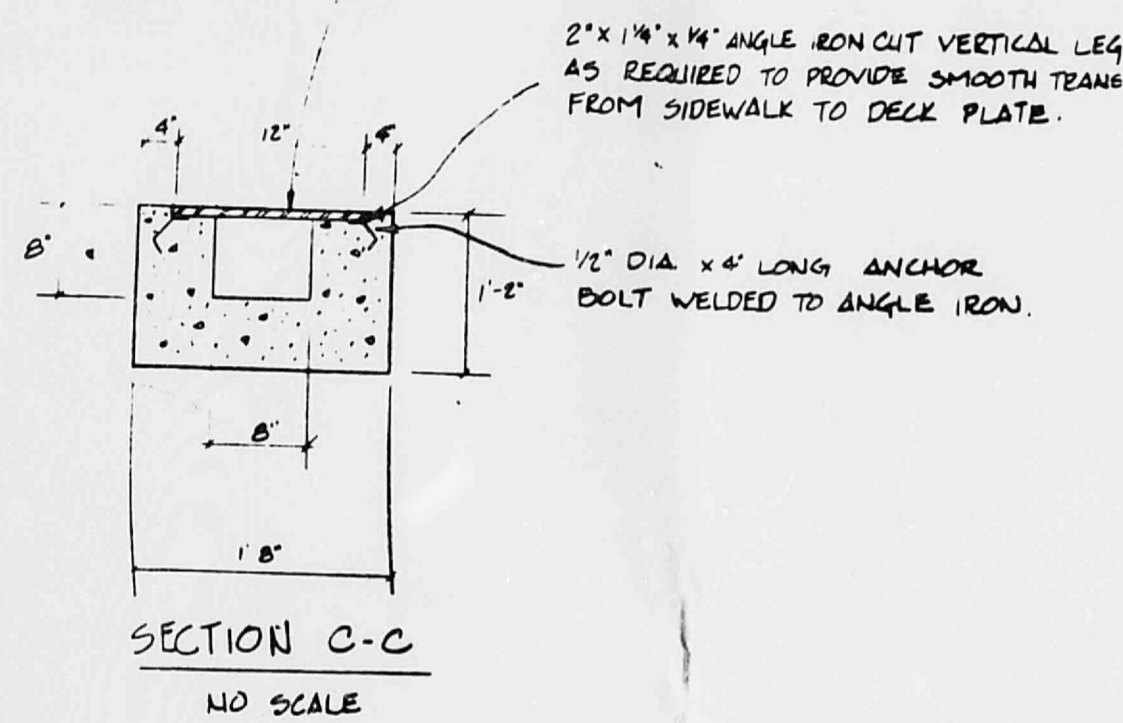 2" x 1¼" x ¼" ANGLE IRON CUT VERTICAL LEG
AS REQUIRED TO PROVIDE SMOOTH TRANS
FROM SIDEWALK TO DECK PLATE.
4" 12" 4"
8"
1'-2"
½" DIA. x 4" LONG ANCHOR
BOLT WELDED TO ANGLE IRON.
8"
1' 8"
SECTION C-C
NO SCALE